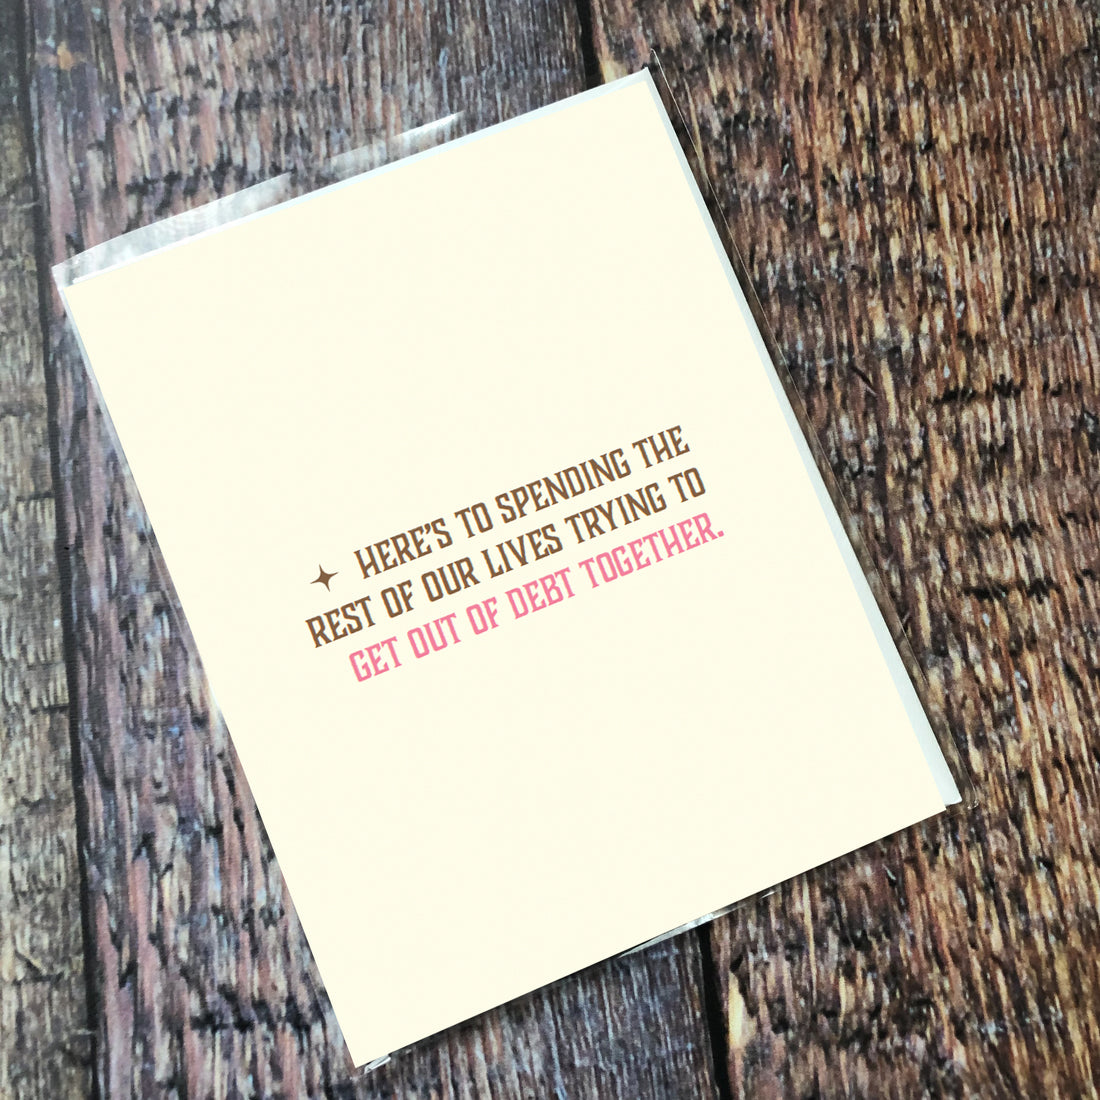 HERE'S TO SPENDING THE
REST OF OUR LIVES TRYING TO
GET OUT OF DEBT TOGETHER.